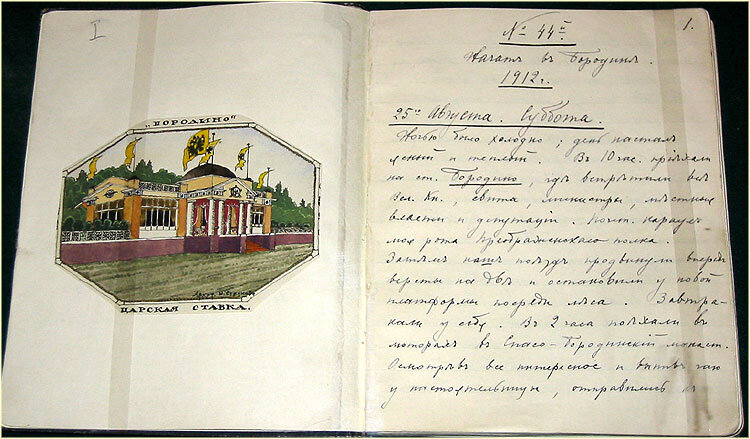 I
„БОРОДИНО“
ЦАРСКАЯ СТАВКА.
1.
№ 44й
Начатъ въ Бородинѣ.
1912 г.
25го Августа. Суббота.
Ночью было холодно; день насталъ
ясный и теплый. Въ 10 час. пріѣхали
на ст. Бородино, где встрѣтили всѣ
Вел. Кн., свита, министры, мѣстныя
власти и депутаціи. Почт. караулъ
моя рота Преображенскаго полка.
Затѣмъ нашъ поѣздъ продвинули впередъ
версты на двѣ и остановили у новой
платформы посреди лѣса. Завтра-
кали у себя. Въ 2 часа поѣхали въ
моторахъ въ Спасо-Бородинскій монаст.
Осмотрѣвъ все интересное и выпивъ чаю
у настоятельницы, отправились къ